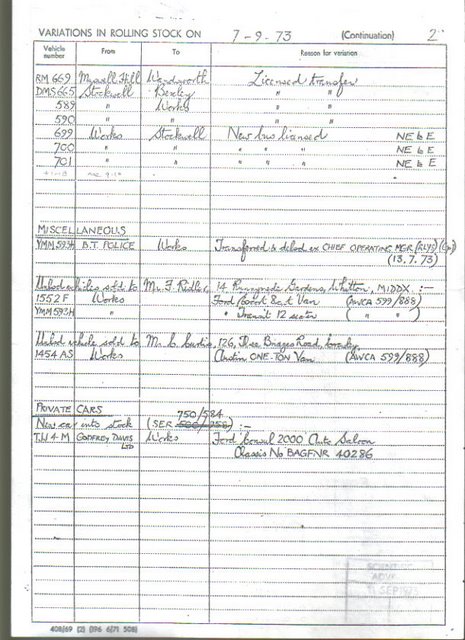 VARIATIONS IN ROLLING STOCK ON 7-9-73 (Continuation) 2.
Vehicle number From To Reason for variation
RM 669 Muswell Hill Wandsworth Licensed transfer
DMS 665 Stockwell Bexley " "
589 " Works " "
590 " " " "
699 Works Stockwell New bus licensed NE 6 E
700 " " " " " NE 6 E
701 " " " " " NE 6 E
MISCELLANEOUS
YMM 593H B.T. POLICE Works Transferred & delicd ex CHIEF OPERATING MGR (RLYS)
(13.7.73)
Unlicd vehicles sold to Mr. F. Ridler, 14 Runnymede Gardens, Whitton, MIDDX. :-
1552 F Works Ford Escort 8cwt Van (AWCA 599/888)
YMM 593H " " Transit 12 seater ( " " )
Unlicd vehicle sold to Mr. C. Curtis, 126, Three Bridges Road, Crawley.
1454 AS Works Austin ONE-TON Van (AWCA 599/888)
PRIVATE CARS 750/584
New car into stock (SER 500/258) :-
GODFREY DAVIS LTD Works Ford Consul 2000 Auto Saloon
Chassis No BAGFNR 40286
SCIENTIFIC
ADVI
SEP
408/69 (2) (196 6/71 50B)